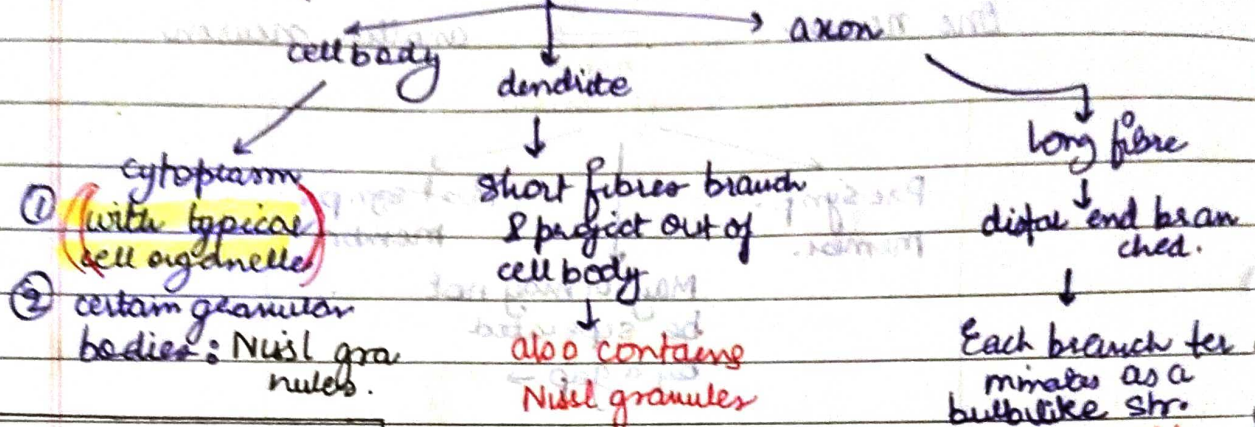 cell body
dendrite
axon
① cytoplasm
(with typical
cell organelles)
② certain granular
bodies: Nissl gra
nules.
short fibres branch
& project out of
cell body
also contains
Nissl granules
long fibre
distal end bran
ched.
Each branch ter
minates as a
bulblike str.